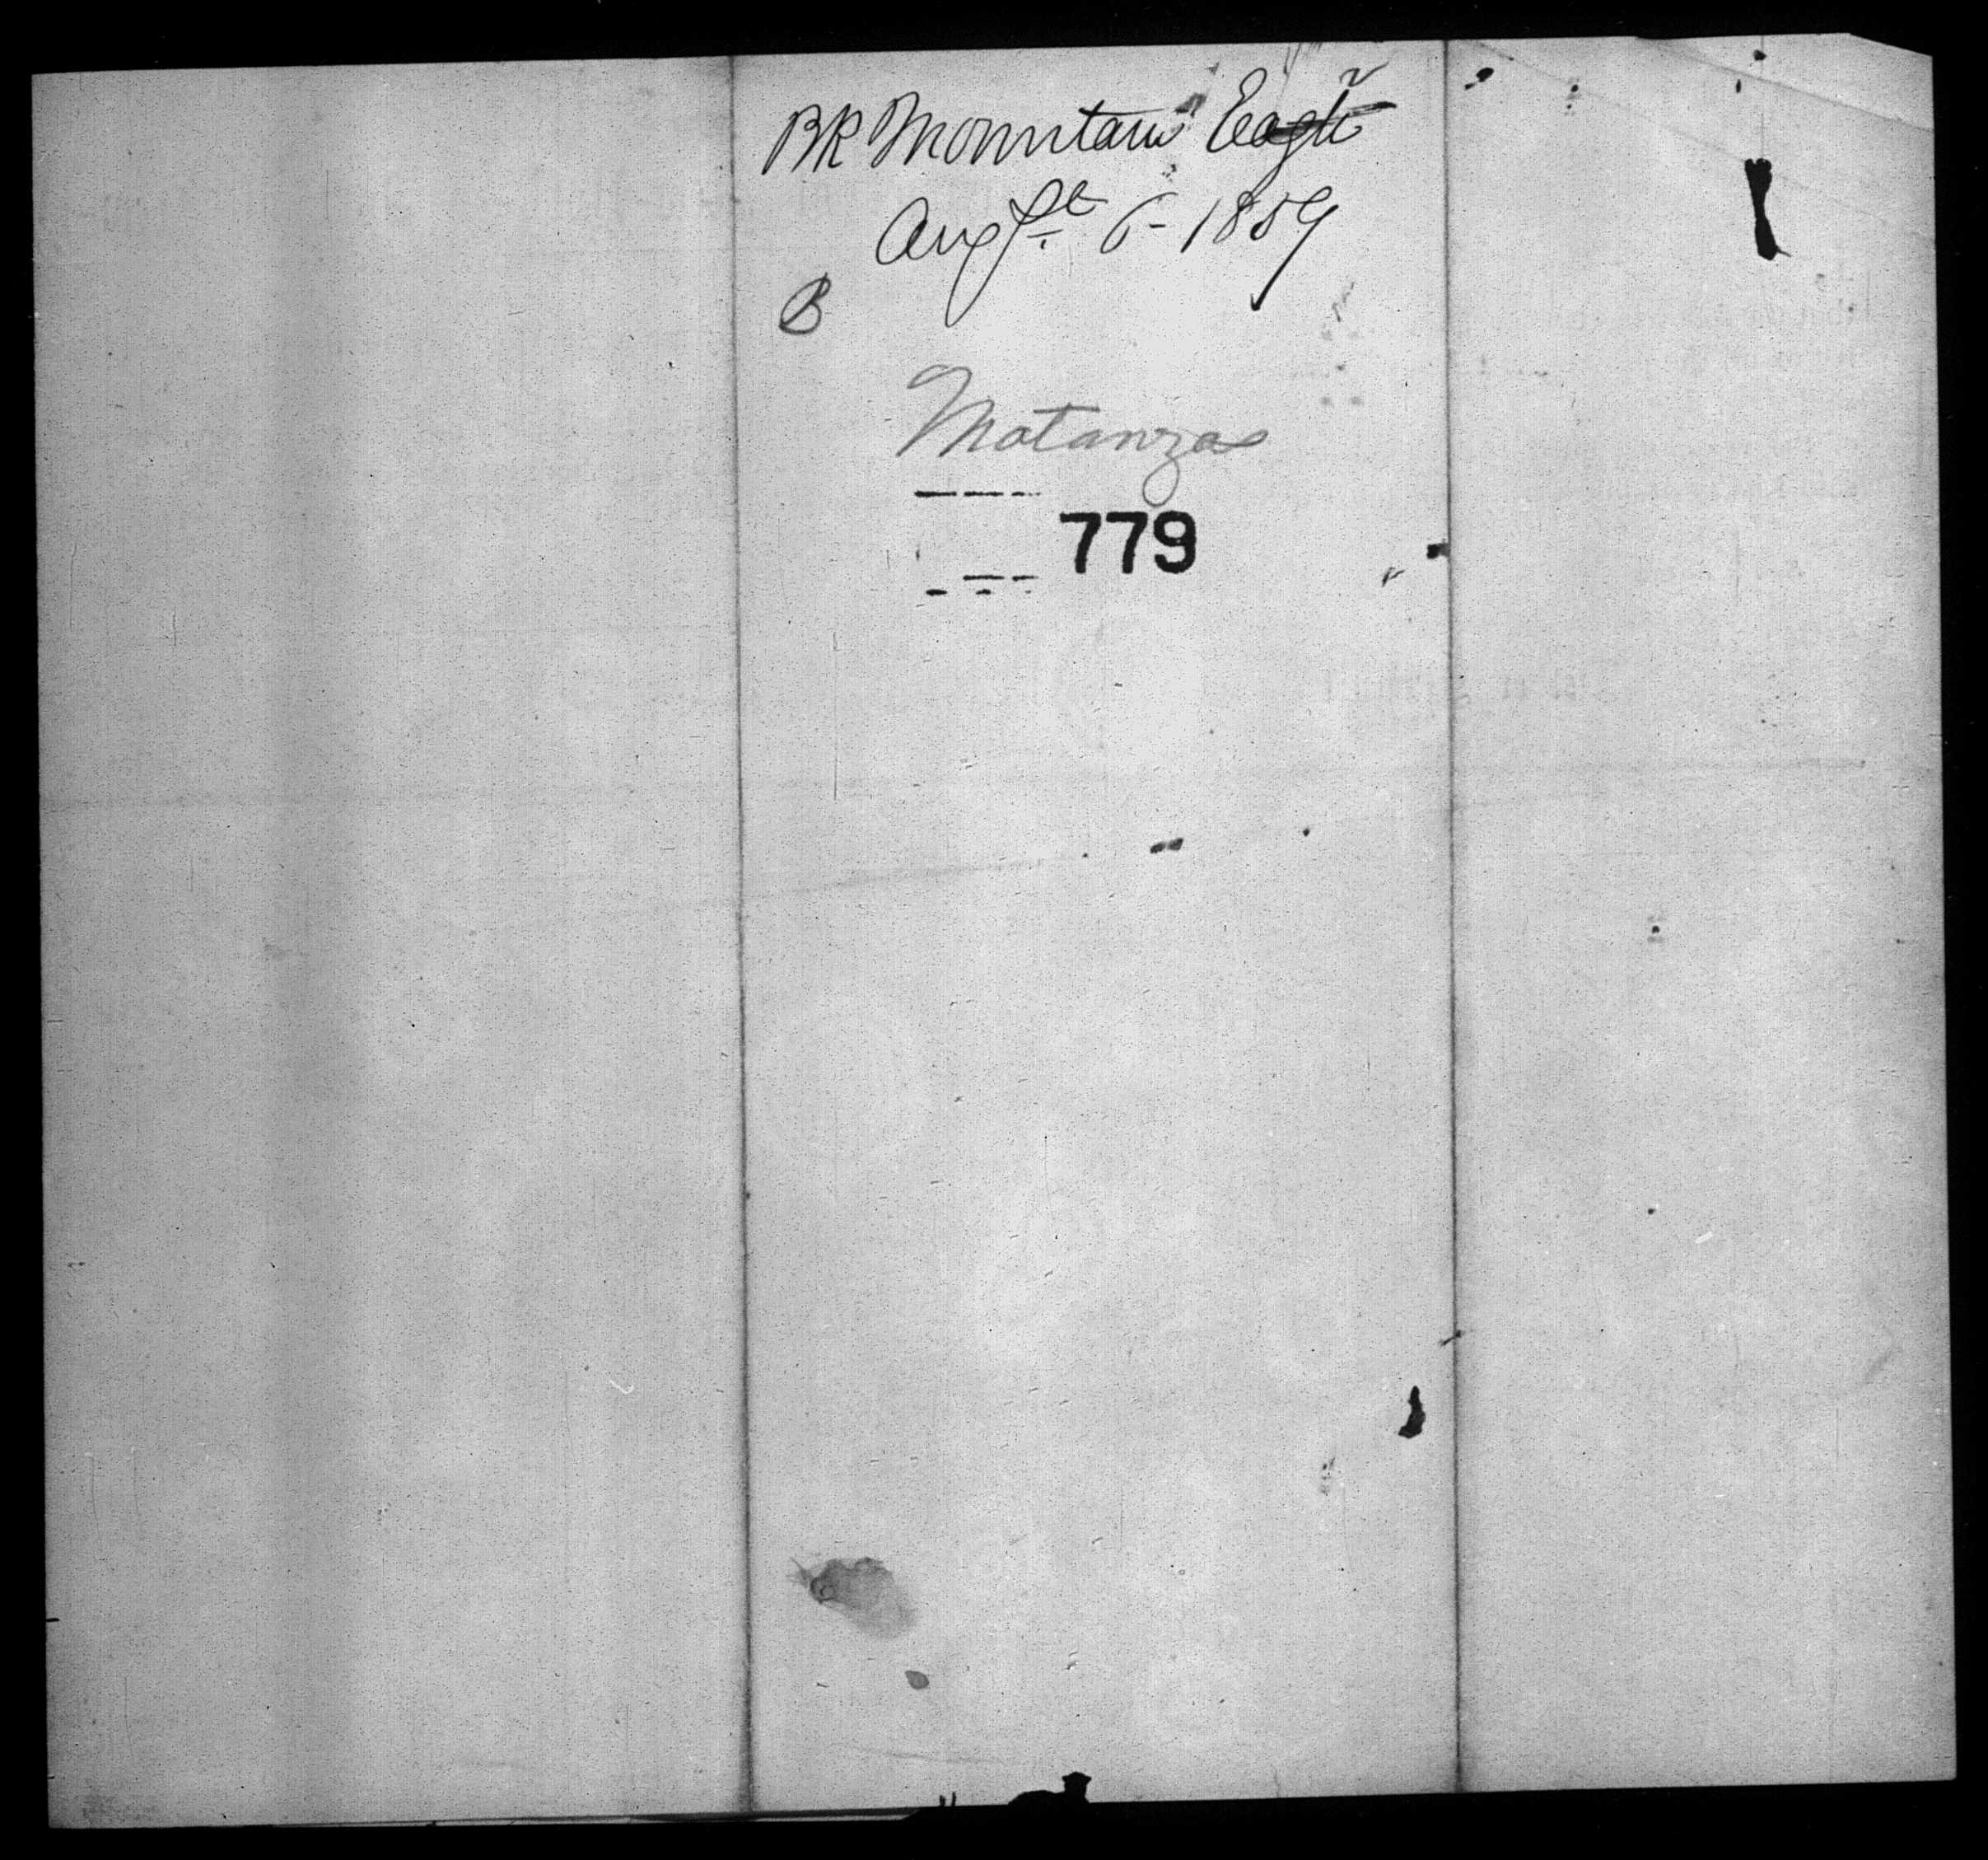 BK Mountain Eagle
Augst 6 - 1859
B
Matanzas
779